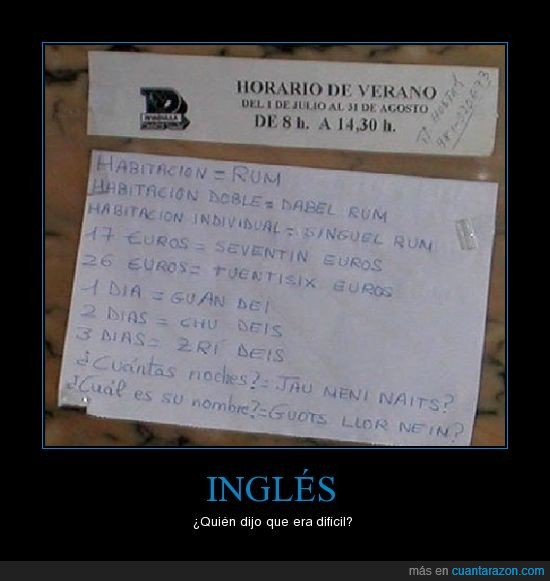 HORARIO DE VERANO
DEL 1 DE JULIO AL 31 DE AGOSTO
DE 8 h. A 14,30 h.
HABITACION = RUM
HABITACION DOBLE = DABEL RUM
HABITACION INDIVIDUAL = SINGUEL RUM
17 EUROS = SEVENTIN EUROS
26 EUROS = TUENTISIX EUROS
1 DIA = GUAN DEI
2 DIAS = CHU DEIS
3 DIAS = ZRÍ DEIS
¿Cuántas noches? = JAU MENI NAITS?
¿Cuál es su nombre? = GUOTS LLOR NEIN?
INGLÉS
¿Quién dijo que era difícil?
más en cuantarazon.com